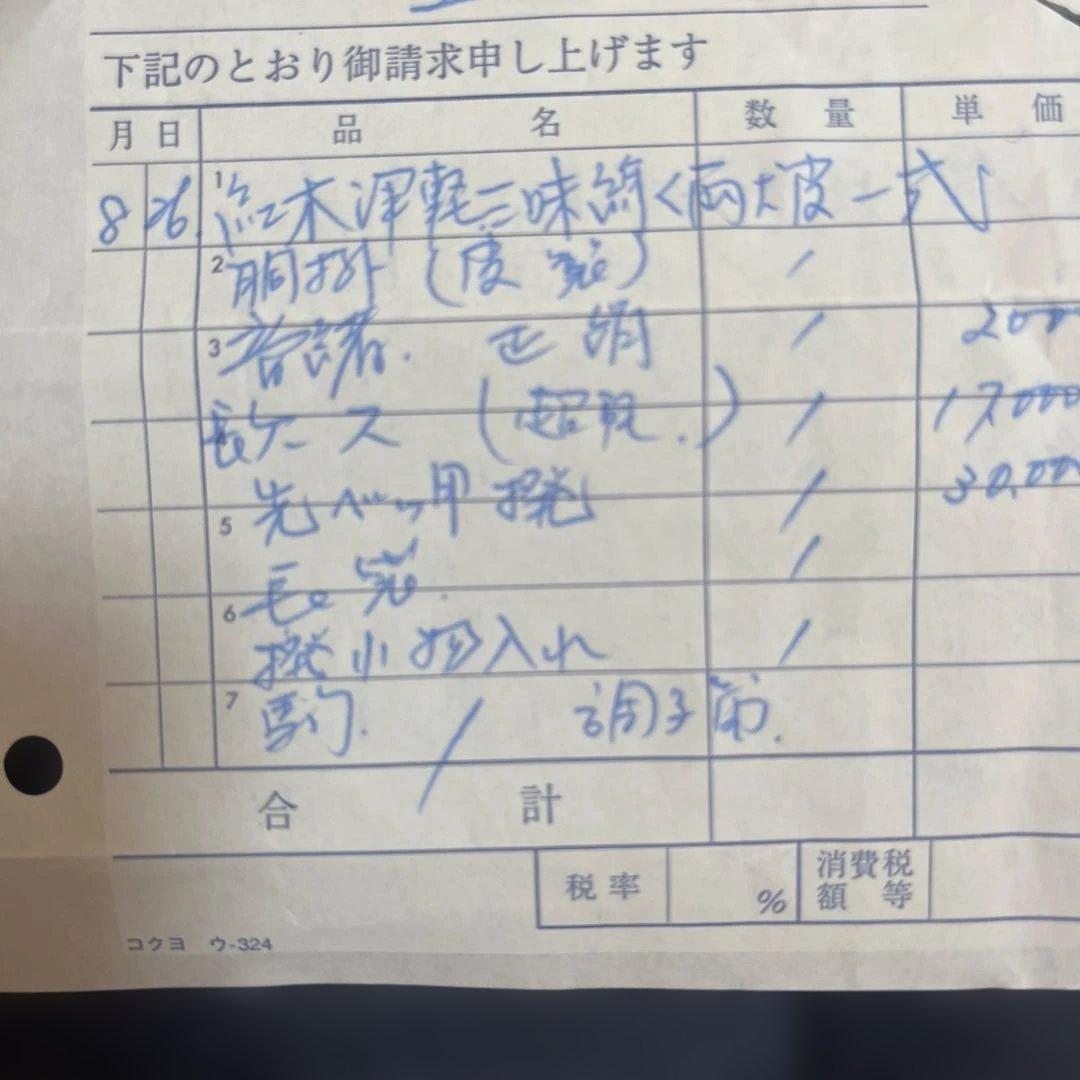 下記のとおり御請求申し上げます
月 日 品 名 数 量 単 価
8 26 1 紅木津軽三味線く両犬皮一式
2 胴掛 (皮 ) /
3 音緒. 正絹 / 2000
長ケース (超軽.) / 17,000
5 先ベッ甲撥 / 30,000
長袋. /
6 撥小物入れ /
7 駒. / 調子笛.
合 計
税率 % 消費税額等
コクヨ ウ-324